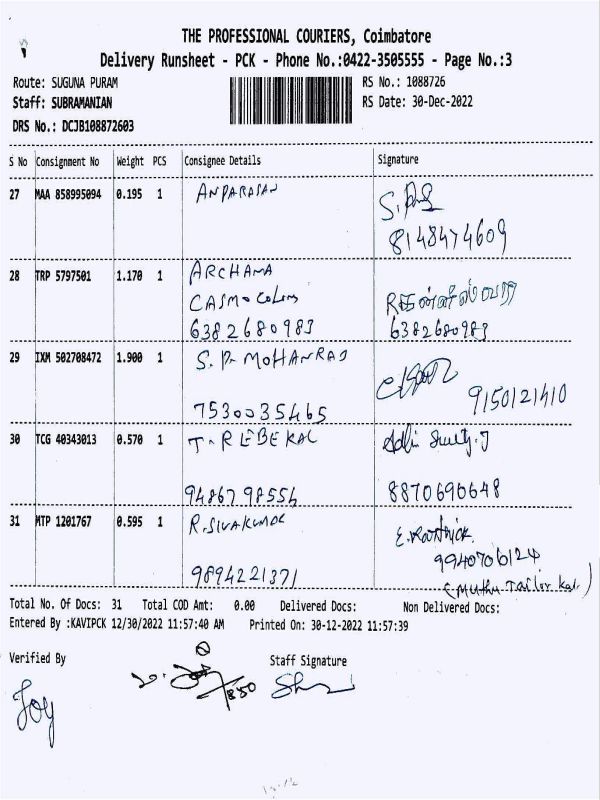 THE PROFESSIONAL COURIERS, Coimbatore
Delivery Runsheet - PCK - Phone No.:0422-3505555 - Page No.:3
Route: SUGUNA PURAM RS No.: 1088726
Staff: SUBRAMANIAN RS Date: 30-Dec-2022
DRS No.: DCJB108872603
S No Consignment No Weight PCS Consignee Details Signature
27 MAA 858995094 0.195 1 ANPARASAN
8148474609
28 TRP 5797501 1.170 1 ARCHANA
6382680983 6382680983
29 IXM 502708472 1.900 1 S. P. MOHANRAJ
7530035465 9150121410
30 TCG 40343013 0.570 1 T. REBEKAL
9486798554 8870690648
31 MTP 1201767 0.595 1 R. SIVAKUMAR
E. Karthick.
9894221371 9940706124
Total No. Of Docs: 31 Total COD Amt: 0.00 Delivered Docs: Non Delivered Docs:
Entered By :KAVIPCK 12/30/2022 11:57:40 AM Printed On: 30-12-2022 11:57:39
Verified By Staff Signature
Joy